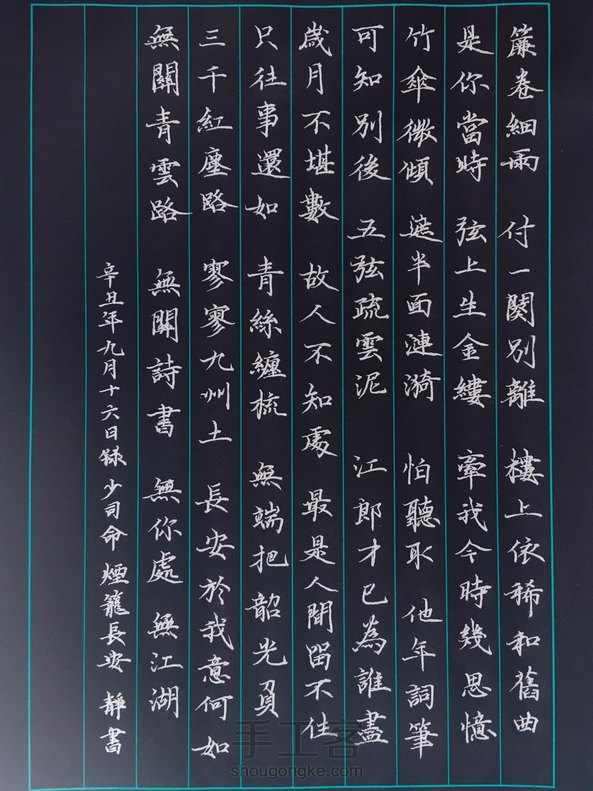 簾卷細雨 付一闋別離 樓上依稀和舊曲
是你當時 弦上生金縷 牽我今時幾思憶
竹傘微傾 遮半面漣漪 怕聽取 他年詞筆
可知別後 五弦疏雲泥 江郎才已為誰盡
歲月不堪數 故人不知處 最是人間留不住
只往事還如 青絲纏梳 無端把韶光負
三千紅塵路 寥寥九州土 長安於我意何如
無關青雲路 無關詩書 無你處 無江湖
辛丑年九月十六日錄 少司命 煙籠長安 靜書
手工客
shougongke.com